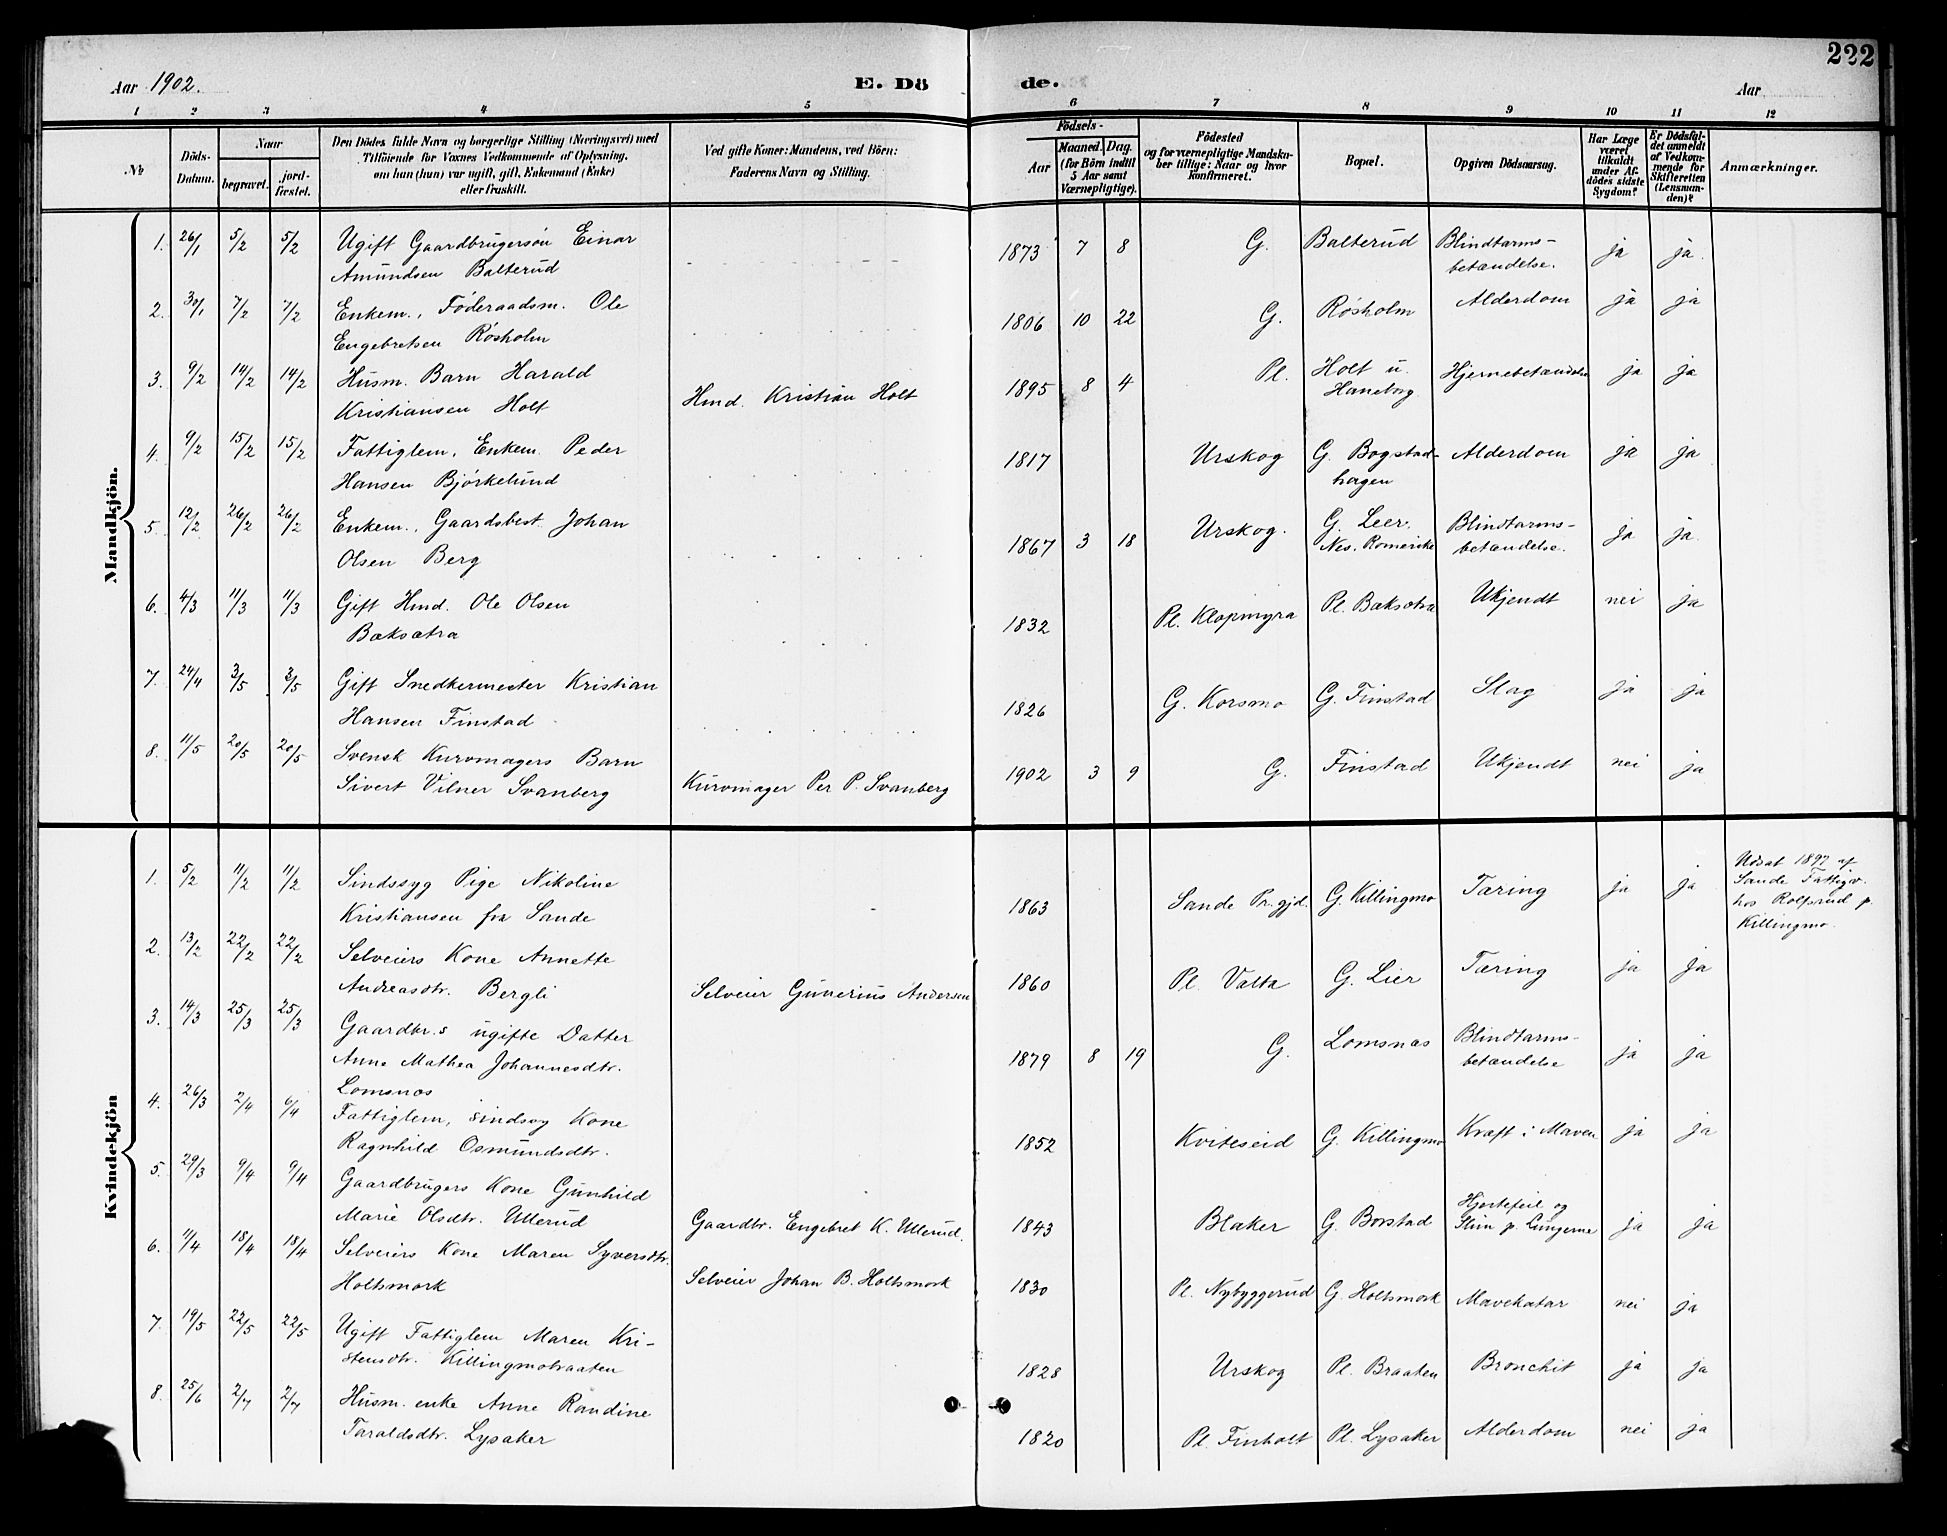 222
Aar 1902.
E. Dö
de.
Aar
1 2 3 4 5 6 7 8 9 10 11 12
No
Döds-
Datum.
Naar
begravet.
jord-
fæstet.
Den Dödes fulde Navn og borgerlige Stilling (Næringsvei) med
Tilföiende for Voxnes Vedkommende af Oplysning,
om han (hun) var ugift, gift, Enkemand (Enke)
eller fraskilt.
Ved gifte Koner: Mandens, ved Börn:
Faderens Navn og Stilling.
Födsels-
Aar
Maaned. Dag.
(for Börn indtil
5 Aar samt
Værnepligtige).
Födested
og for værnepligtige Mandska-
ber tillige: Naar og hvor
konfirmeret.
Bopæl.
Opgiven Dödsaarsag.
Har Læge
været
tilkaldt
under Af-
dödes sidste
Sygdom?
Er Dödsfal-
det anmeldt
af Vedkom-
mende for
Skifteretten
(Lensman-
den)?
Anmærkninger.
Mandkjön.
1. 26/1 5/2 5/2 Ugift Gaardbrugersøn Einar
Amundsen Balterud
1873 7 8 G. Balterud Blindtarms-
betændelse. ja ja.
2. 30/1 7/2 7/2 Enkem., Føderaadsm. Ole
Engebretsen Røsholm
1806 10 22 G. Røsholm Alderdom ja ja
3. 9/2 14/2 14/2 Husm. Barn Harald
Kristiansen Holt Hmd. Kristian Holt
1895 8 4 Pl. Holt u.
Haneborg Hjernebetændelse ja ja
4. 9/2 15/2 15/2 Fattiglem, Enkem. Peder
Hansen Bjørkelund
1817 Urskog G. Bogstad-
hagen Alderdom ja ja
5. 12/2 26/2 26/2 Enkem., Gaardsbest. Johan
Olsen Berg
1867 3 18 Urskog. G. Leer.
Nes. Romerike Blindtarms-
betændelse. ja ja.
6. 4/3 11/3 11/3 Gift Hmd. Ole Olsen
Bæksætra
1832 Pl. Klopmyra Pl. Bæksætra Ukjendt nei ja
7. 24/4 3/5 3/5 Gift Snedkermester Kristian
Hansen Finstad
1826 G. Korsmo G. Finstad Slag ja ja
8. 11/5 20/5 20/5 Svensk Kurvmagers Barn
Sivert Vilner Svanberg Kurvmager Per P. Svanberg
1902 3 9 G. Finstad Ukjendt nei ja
Kvindekjön
1. 5/2 11/2 11/2 Sindssyg Pige Nikoline
Kristiansen fra Sande
1863 Sande Pr.gjd. G. Killingmo Tæring ja ja
Udsat 1897 af
Sande Fattigv.
hos Rolfsrud p.
Killingmo.
2. 13/2 22/2 22/2 Selveiers Kone Annette
Andreasdtr. Bergli Selveier Gunerius Andersen
1860 Pl. Valta G. Lier Tæring ja ja
3. 14/3 25/3 25/3 Gaardbr.s ugifte Datter
Anne Mathea Johannesdtr.
Lomsnæs
1879 8 19 G. Lomsnæs Blindtarms-
betændelse ja ja
4. 26/3 2/4 6/4 Fattiglem, sindsyg Kone
Ragnhild Osmundsdtr.
1852 Kviteseid G. Killingmo Kræft i Maven ja ja
5. 29/3 9/4 9/4 Gaardbrugers Kone Gunhild
Marie Olsdtr. Ullerud Gaardbr. Engebret K. Ullerud.
1843 Blaker G. Borstad Hjertefeil og
Slim p. Lungerne ja ja
6. 11/4 18/4 18/4 Selveiers Kone Maren Syversdtr.
Holtsmark Selveier Johan B. Holtsmark
1830 Pl. Nybyggerud G. Holtsmark Mavekatar nei ja
7. 19/5 22/5 22/5 Ugift Fattiglem Maren Kri-
stensdtr. Killingmobraaten
1828 Urskog Pl. Braaten Bronchit ja ja
8. 25/6 2/7 2/7 Husm. enke Anne Randine
Taraldsdtr. Lysaker
1820 Pl. Finholt Pl. Lysaker Alderdom nei ja